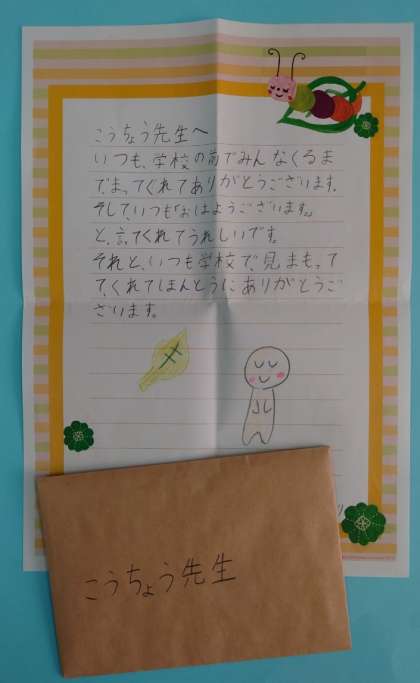 こうちょう先生へ
いつも、学校の前でみんなくるま
でまってくれてありがとうございます。
そして、いつも「おはようございます。」
と、言てくれてうれしいです。
それと、いつも学校で、見まもって
て、くれてほんとうにありがとうご
ざいます。
り
こうちょう先生